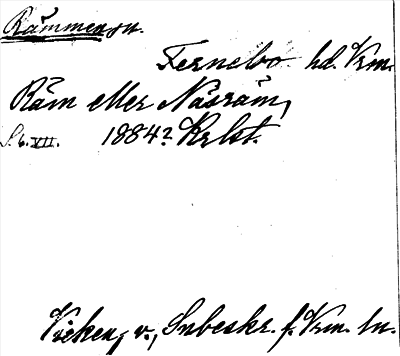 Rämmensn.
Fernebo hd. Vrm.
Räm eller Näsräm,
S. 6. VII. 1884? Krlst.
Vieken, v., Snbeskr. f. Vrm. ln.